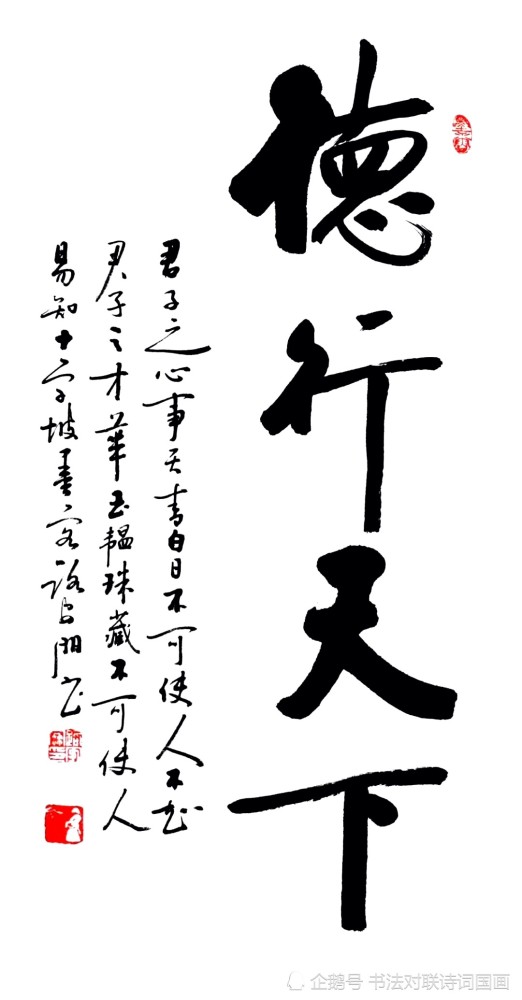 德行天下
君子之心事天青白日不可使人不知
君子之才華玉韞珠藏不可使人
易知十字坡
企鹅号 书法对联诗词国画